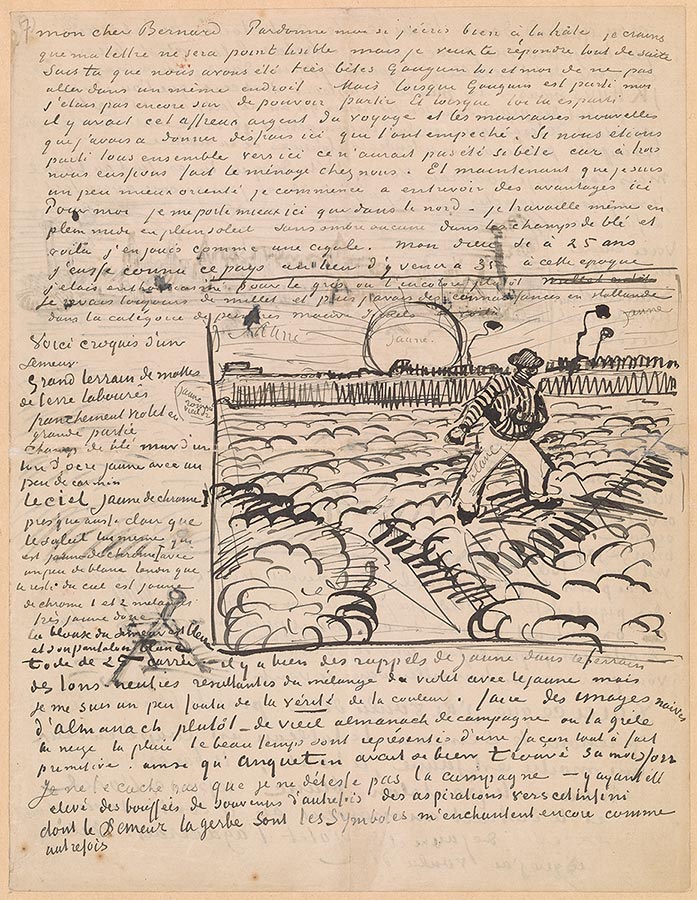 7
mon cher Bernard Pardonne moi si j'écris bien à la hâte je crains
que ma lettre ne sera point lisible mais je veux te répondre tout de suite
Sais tu que nous avons été très bêtes Gauguin toi et moi de ne pas
aller dans un même endroit. Mais lorsque Gauguin est parti moi
j'étais pas encore sûr de pouvoir partir Et lorsque toi tu es parti
il y avait cet affreux argent du voyage et les mauvaises nouvelles
que j'avais à donner des frais ici qui l'ont empeché. Si nous étions
parti tous ensemble vers ici ce n'aurait pas été si bête car à trois
nous eussions fait le ménage chez nous. Et maintenant que je suis
un peu mieux orienté je commence à entrevoir des avantages ici
Pour moi je me porte mieux ici que dans le nord - je travaille même en
plein midi en plein soleil sans ombre aucune dans les champs de blé et
voilà j'en jouis comme une cigale. Mon dieu si à 25 ans
j'eusse connu ce pays au lieu d'y venir à 35 à cette époque
j'étais enthousiasmé pour le gris ou l'incolore plutôt
je rêvais toujours de millet et puis j'avais des connaissances en Hollande
dans la catégorie de peintres mauve Israels
Voici croquis d'un
semeur
Grand terrain de mottes
de terre labourées
franchement violet en
grande partie
Champ de blé mûr d'un
ton d'ocre jaune avec un
peu de carmin
Le ciel jaune de chrome 1
presqu'aussi clair que
le soleil lui meme qui
est jaune de chrome 1 avec
un peu de blanc tandis que
le reste du ciel est jaune
de chrome 1 et 2 mélangés
très jaune donc
La blouse du semeur est bleue
et son pantalon blanc
toile de 25 carrée
jaune
jaune.
jaune
blanc
il y a bien des rappels de jaune dans le terrain
des tons neutres résultants du mélange du violet avec le jaune mais
je me suis un peu foutu de la vérité de la couleur. faire des images naives
d'almanach plutôt - de vieil almanach de campagne où la grêle
la neige la pluie le beau temps sont représentés d'une façon tout à fait
primitive. ainsi qu'anquetin avait si bien trouvé sa moisson
Je ne te cache pas que je ne déteste pas la campagne - y ayant été
élevé des bouffées de souvenirs d'autrefois des aspirations vers cet infini
dont le Semeur la gerbe sont les symboles m'enchantent encore comme
autrefois